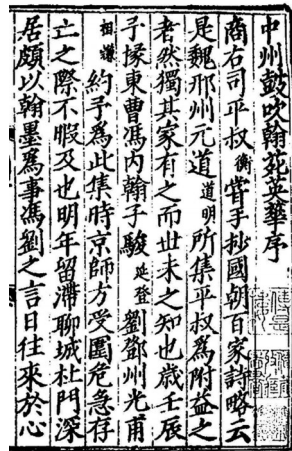 中州鼓吹翰苑英華序
商右司平叔衡嘗手抄國朝百家詩略云
是魏邢州元道道明所集平叔為附益之
者然獨其家有之而世未之知也歲壬辰
予掾東曹馮内翰子駿延登劉鄧州光甫
祖謙約予為此集時京師方受圍危急存
亡之際不暇及也明年留滯聊城杜門深
居頗以翰墨為事馮劉之言日往來於心